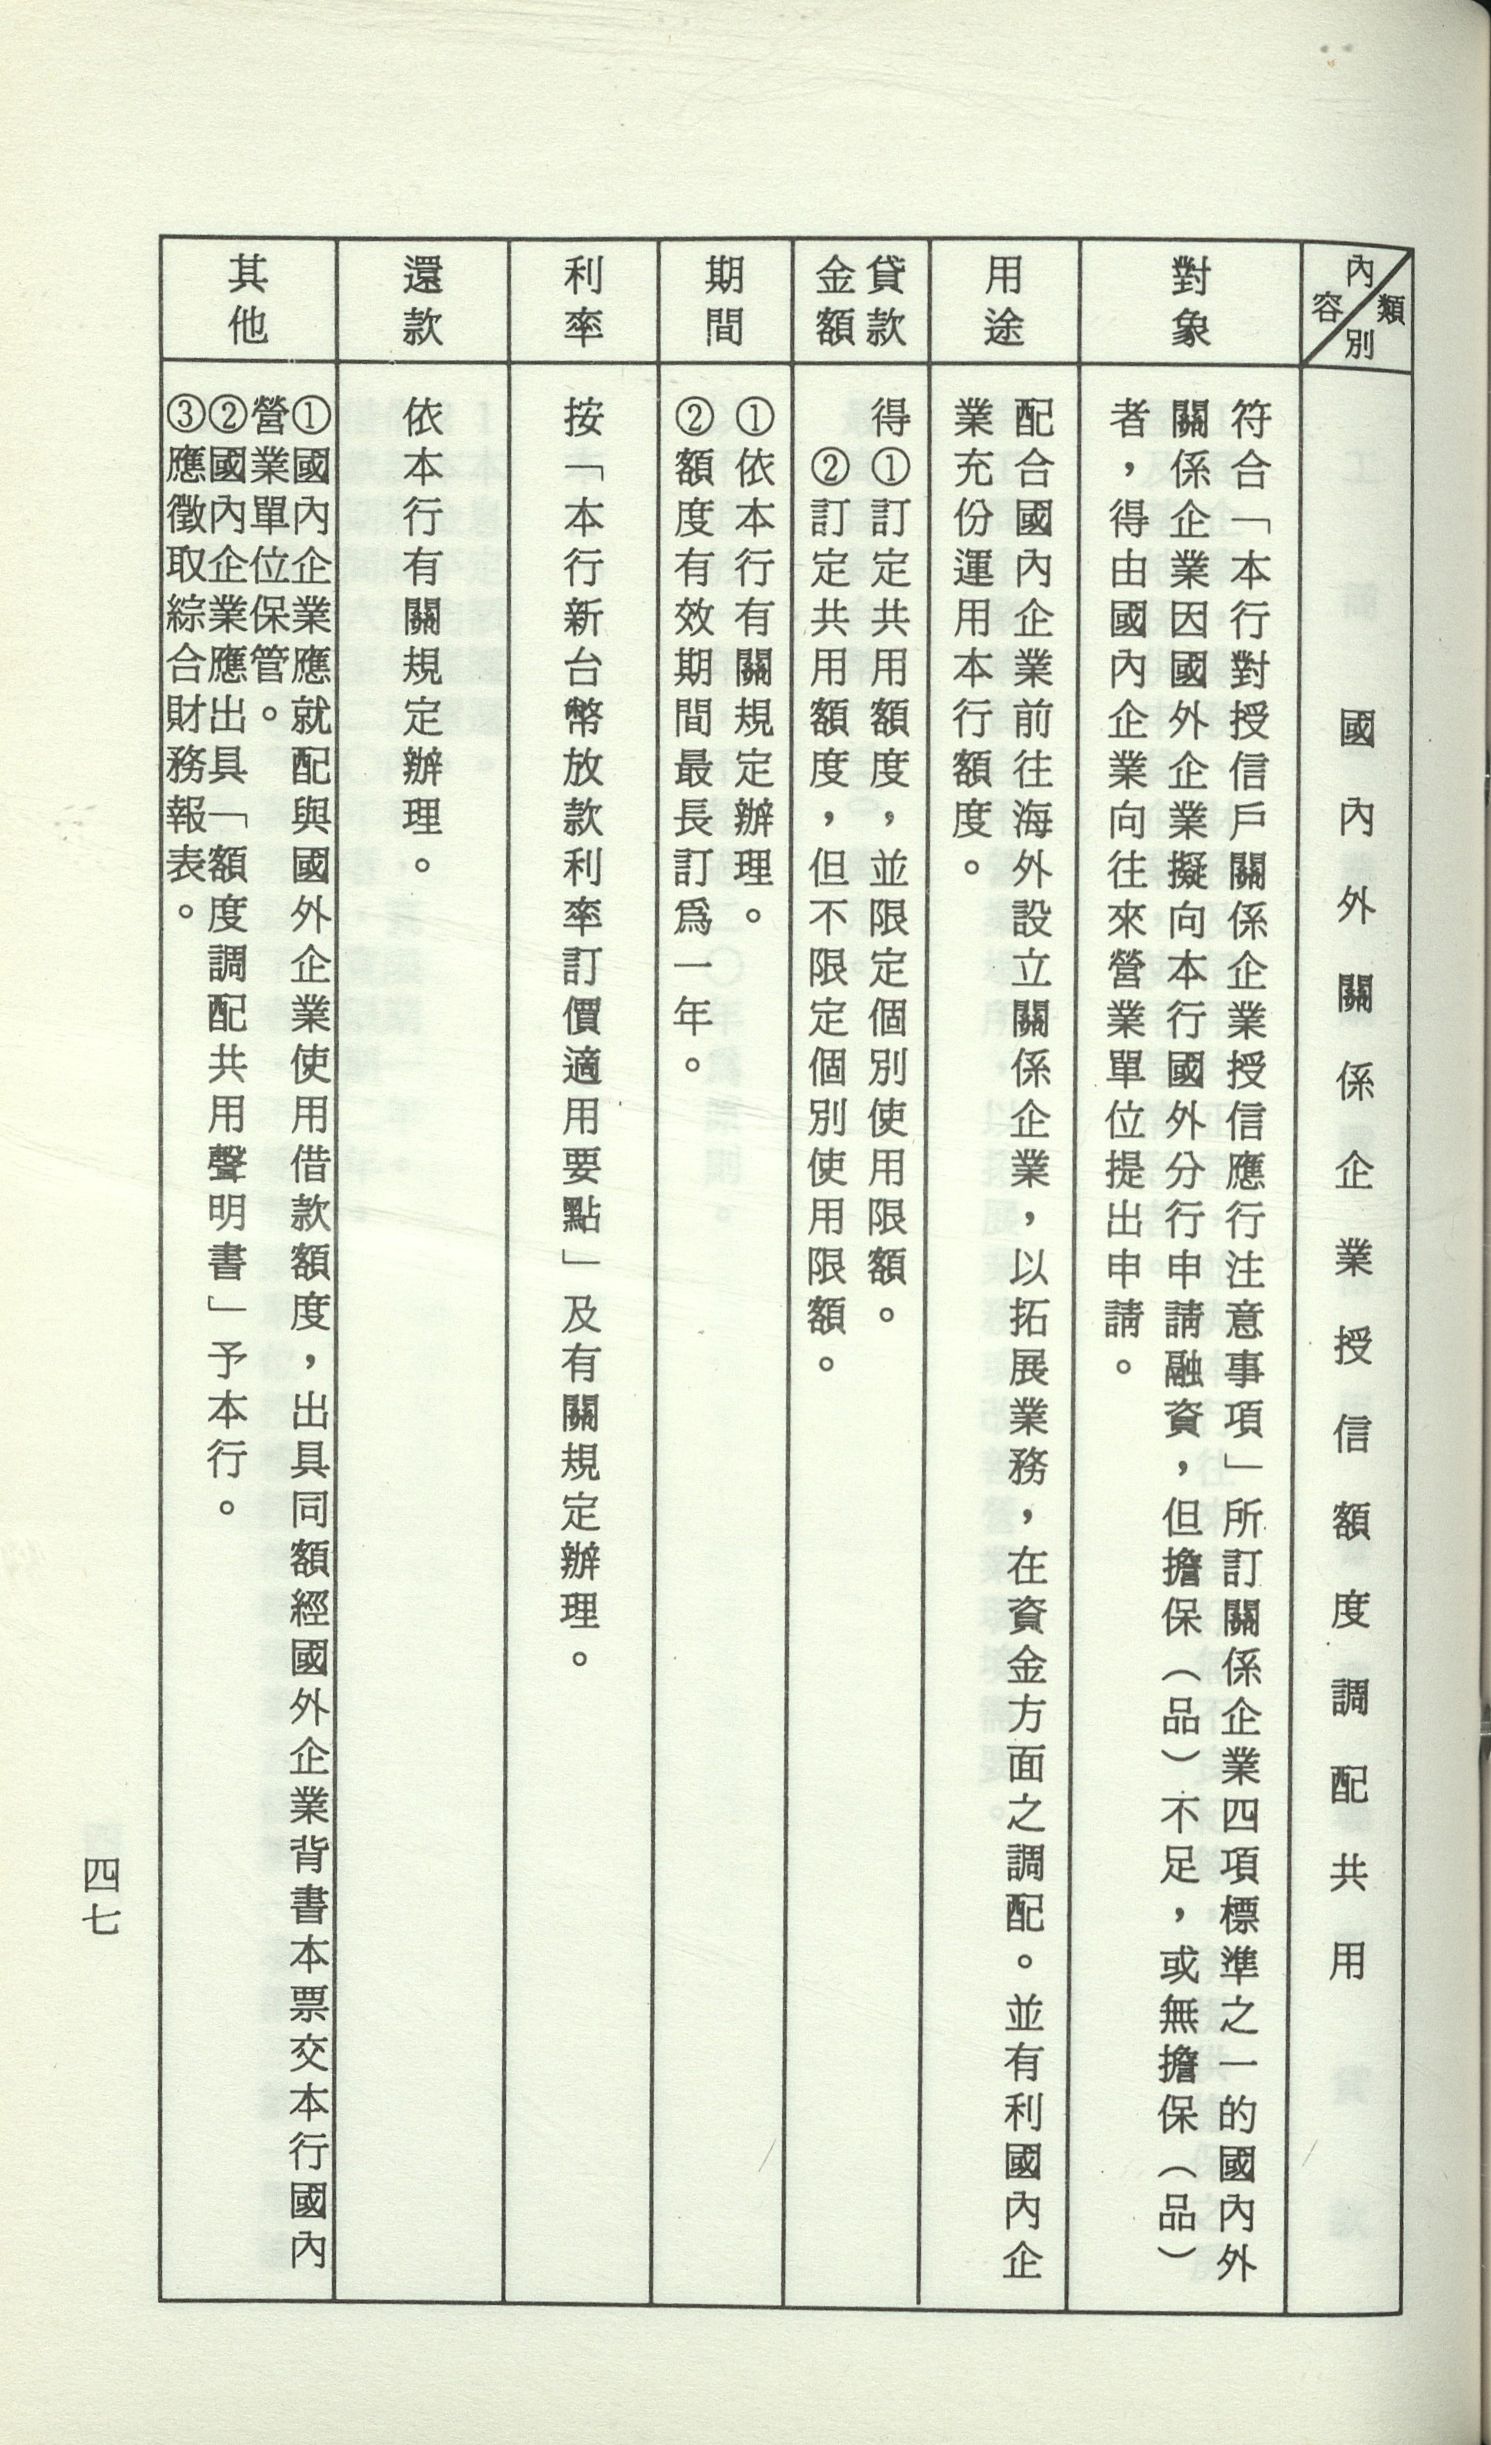 類別
內容
國內外關係企業授信額度調配共用
對象
符合「本行對授信戶關係企業授信應行注意事項」所訂關係企業四項標準之一的國內外
關係企業因國外企業擬向本行國外分行申請融資，但擔保（品）不足，或無擔保（品）
者，得由國內企業向往來營業單位提出申請。
用途
配合國內企業前往海外設立關係企業，以拓展業務，在資金方面之調配。並有利國內企
業充份運用本行額度。
貸款
金額
得①訂定共用額度，並限定個別使用限額。
②訂定共用額度，但不限定個別使用限額。
期間
①依本行有關規定辦理。
②額度有效期間最長訂為一年。
利率
按「本行新台幣放款利率訂價適用要點」及有關規定辦理。
還款
依本行有關規定辦理。
其他
①國內企業應就配與國外企業使用借款額度，出具同額經國外企業背書本票交本行國內
營業單位保管。
②國內企業應出具「額度調配共用聲明書」予本行。
③應徵取綜合財務報表。
四七